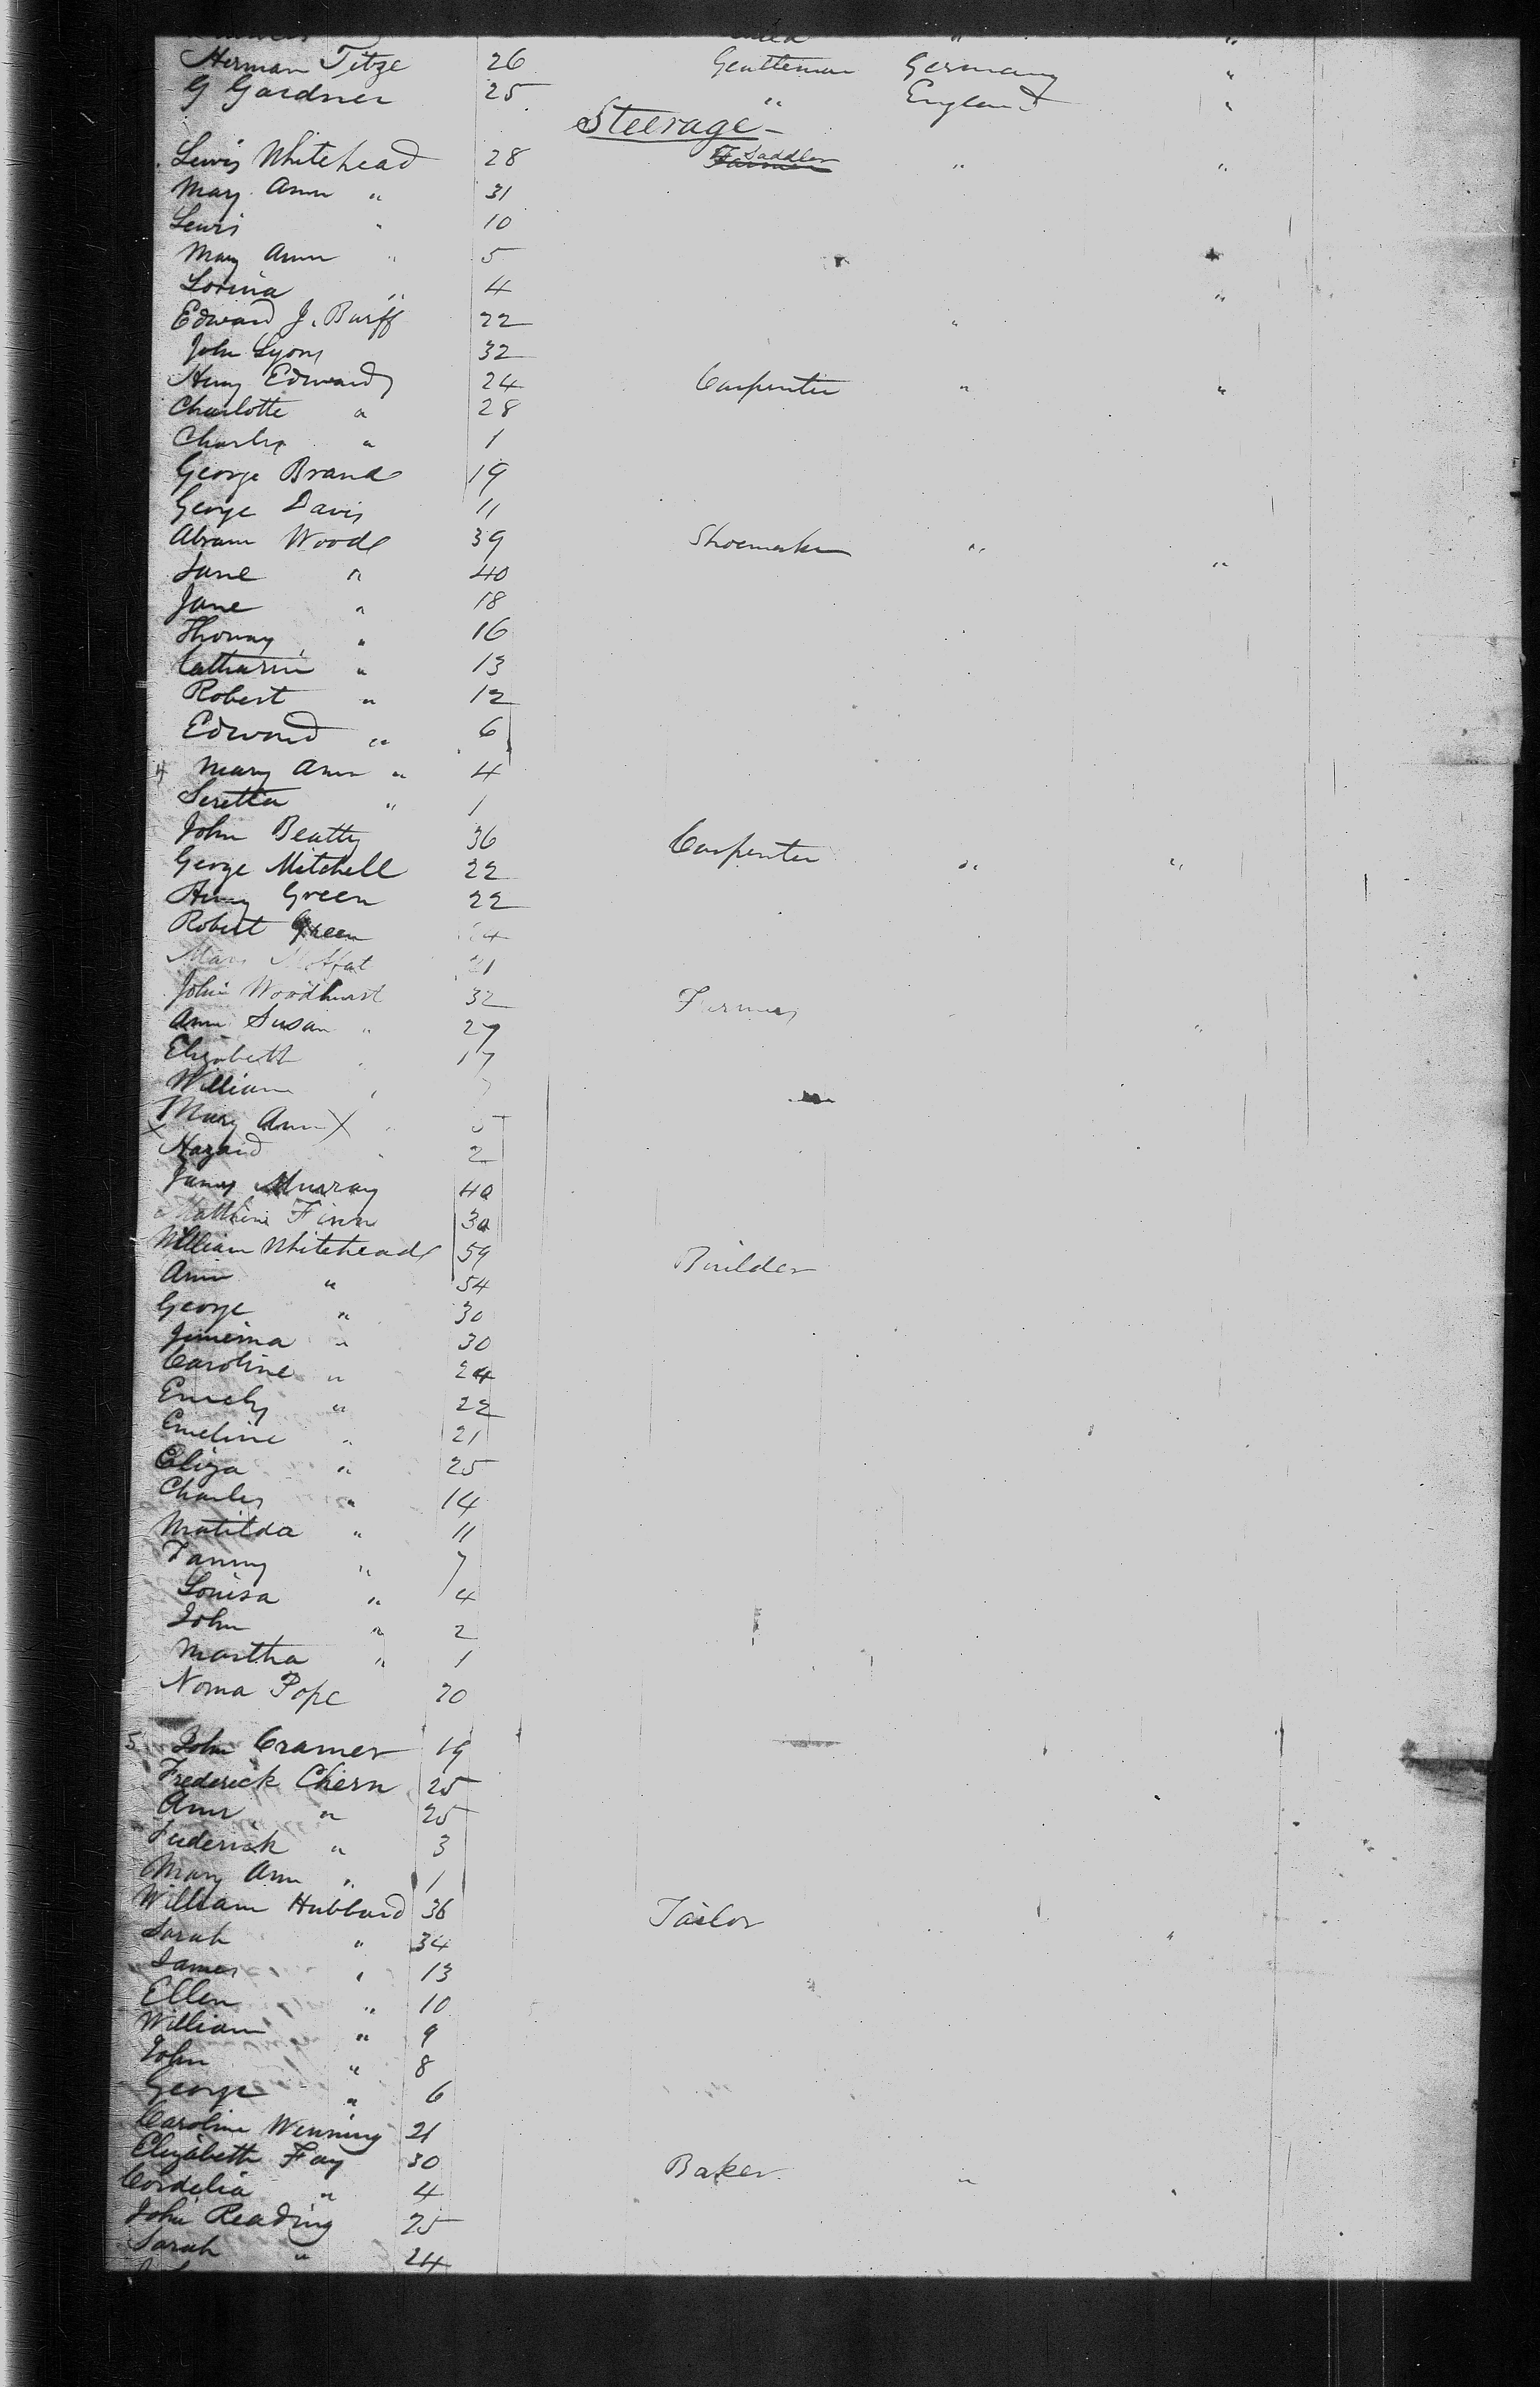 Herman Titze 26 Gentleman Germany "
G Gardner 25 " England "
Steerage -
Lewis Whitehead 28 Farmer Saddler " "
Mary Ann " 31
Lewis " 10
Mary Ann " 5
Lovina " 4 "
Edward J. Burff 22 "
John Lyons 32
Henry Edwards 24 Carpenter " "
Charlotte " 28
Charles " 1
George Brand 19
George Davis 11
Abram Woods 39 Shoemaker " "
Jane " 40
Jane " 18
Thomas " 16
Catharin " 13
Robert " 12
Edward " 6
4 Mary Ann " 4
" 1
John Beatty 36 Carpenter
George Mitchell 22 " "
Henry Green 22
Robert Green
Moffat 21
John Woodhurst 32 Farmer
Ann Susan " 29 "
Elizabeth " 17
William "
X Mary Ann X "
Hazard " 2
James Murray 40
Finn 30
William Whitehead 59 Builder
Ann " 54
George " 30
Jimima " 30
Caroline " 24
Emely " 22
Emeline " 21
Eliza " 25
Charles " 14
Matilda " 11
Fanny " 7
Louisa " 4
John " 2
Martha " 1
Noma Pope 20
5 John Cramer 19
Frederick Chern 25
Ann " 25
Frederick " 3
Mary Ann " 1
William Hubbard 36 Tailor "
Sarah " 34
James " 13
Ellen " 10
William " 9
John " 8
George " 6
Caroline Wenning 21
Elizabeth Fay 30 Baker "
Cordelia " 4
John Reading 25
Sarah " 24